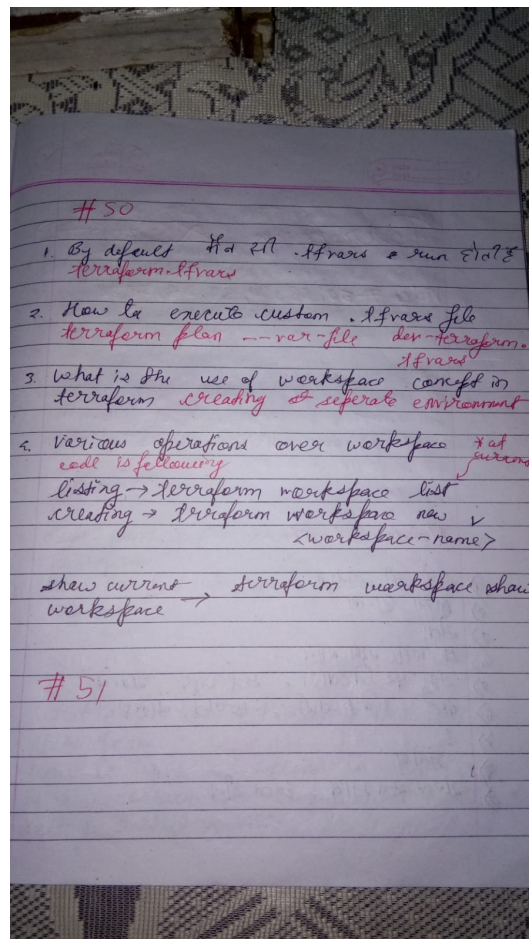 # 50
1. By default कौन सी .tfvars e run होती है
terraform.tfvars
2. How to execute custom .tfvars file
terraform plan --var-file dev-terraform.
tfvars
3. What is the use of workspace concept in
terraform creating of seperate environment
4. Various operations over workspace * at
code is following current
listing → terraform workspace list
creating → terraform workspace new
<workspace-name>
show current → terraform workspace show
workspace
# 51